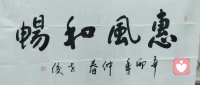 惠風和暢
辛卯年仲春